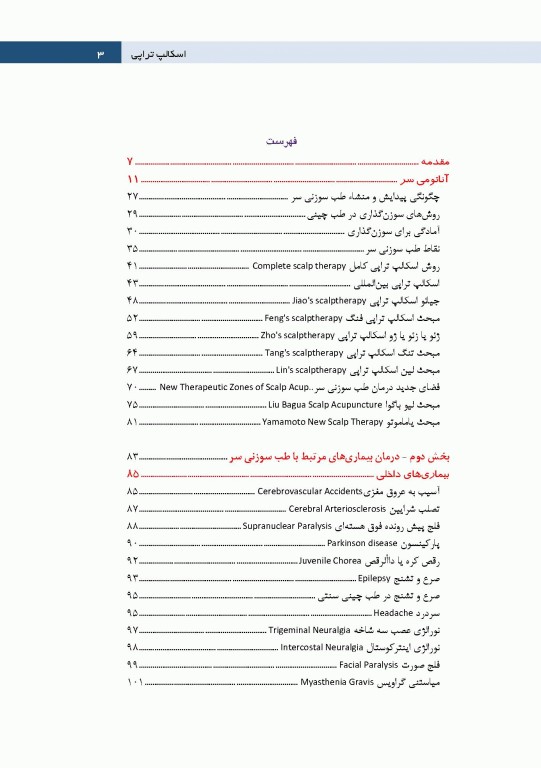 اسکالپ تراپی ۳
فهرست
مقدمه ۷
آناتومی سر ۱۱
چگونگی پیدایش و منشاء طب سوزنی سر ۲۷
روش‌های سوزن‌گذاری در طب چینی ۲۹
آمادگی برای سوزن‌گذاری ۳۰
نقاط طب سوزنی سر ۳۵
روش اسکالپ تراپی کامل Complete scalp therapy ۴۱
اسکالپ تراپی بین‌المللی ۴۳
جیائو اسکالپ تراپی Jiao's scalptherapy ۴۸
مبحث اسکالپ تراپی فنگ Feng's scalptherapy ۵۲
ژئو یا زئو یا ژو اسکالپ تراپی Zho's scalptherapy ۵۹
مبحث تنگ اسکالپ تراپی Tang's scalptherapy ۶۴
مبحث لین اسکالپ تراپی Lin's scalptherapy ۶۷
فضای جدید درمان طب سوزنی سر..New Therapeutic Zones of Scalp Acup ۷۰
مبحث لیو باگوا Liu Bagua Scalp Acupuncture ۷۵
مبحث یاماموتو Yamamoto New Scalp Therapy ۸۱
بخش دوم - درمان بیماری‌های مرتبط با طب سوزنی سر ۸۳
بیماری‌های داخلی ۸۵
آسیب به عروق مغزی Cerebrovascular Accidents ۸۵
تصلب شرایین Cerebral Arteriosclerosis ۸۷
فلج پیش رونده فوق هسته‌ای Supranuclear Paralysis ۸۸
پارکینسون Parkinson disease ۹۰
رقص کره یا داألرقص Juvenile Chorea ۹۲
صرع و تشنج Epilepsy ۹۳
صرع و تشنج در طب چینی سنتی ۹۵
سردرد Headache ۹۵
نورالژی عصب سه شاخه Trigeminal Neuralgia ۹۷
نورالژی اینترکوستال Intercostal Neuralgia ۹۸
فلج صورت Facial Paralysis ۹۹
میاستنی گراویس Myasthenia Gravis ۱۰۱